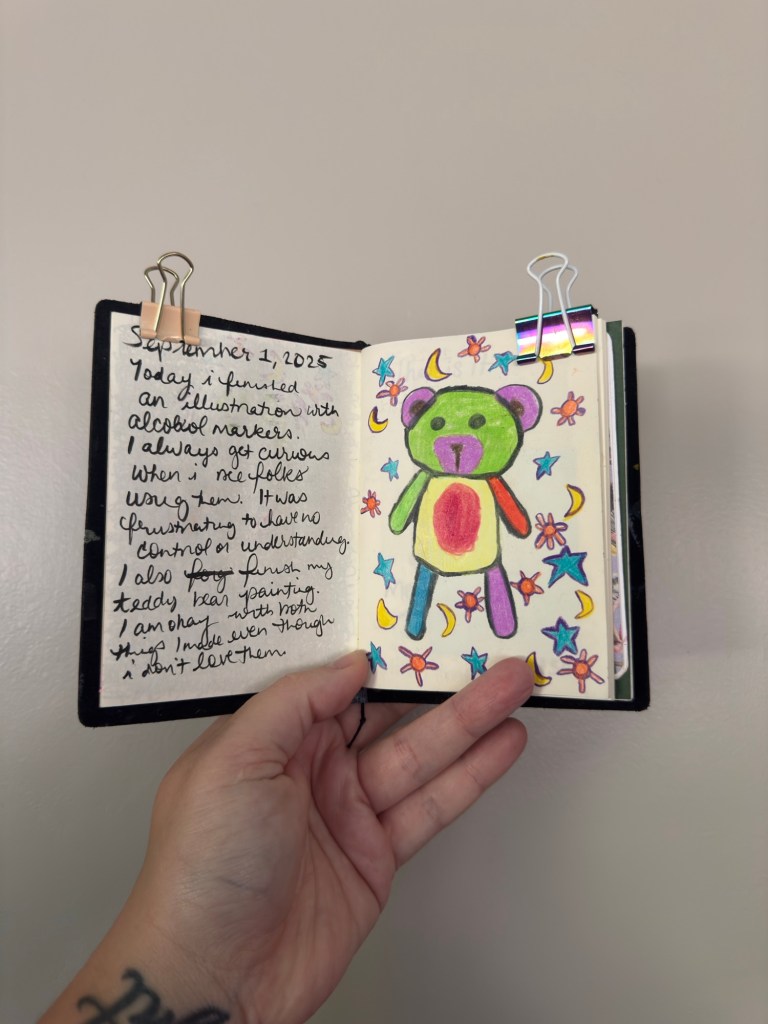 September 1, 2025
Today i finished
an illustration with
alcohol markers.
I always get curious
when i see folks
using them. It was
frustrating to have no
control or understanding.
I also finish my
teddy bear painting.
I am okay with both
things I made even though
i don't love them.